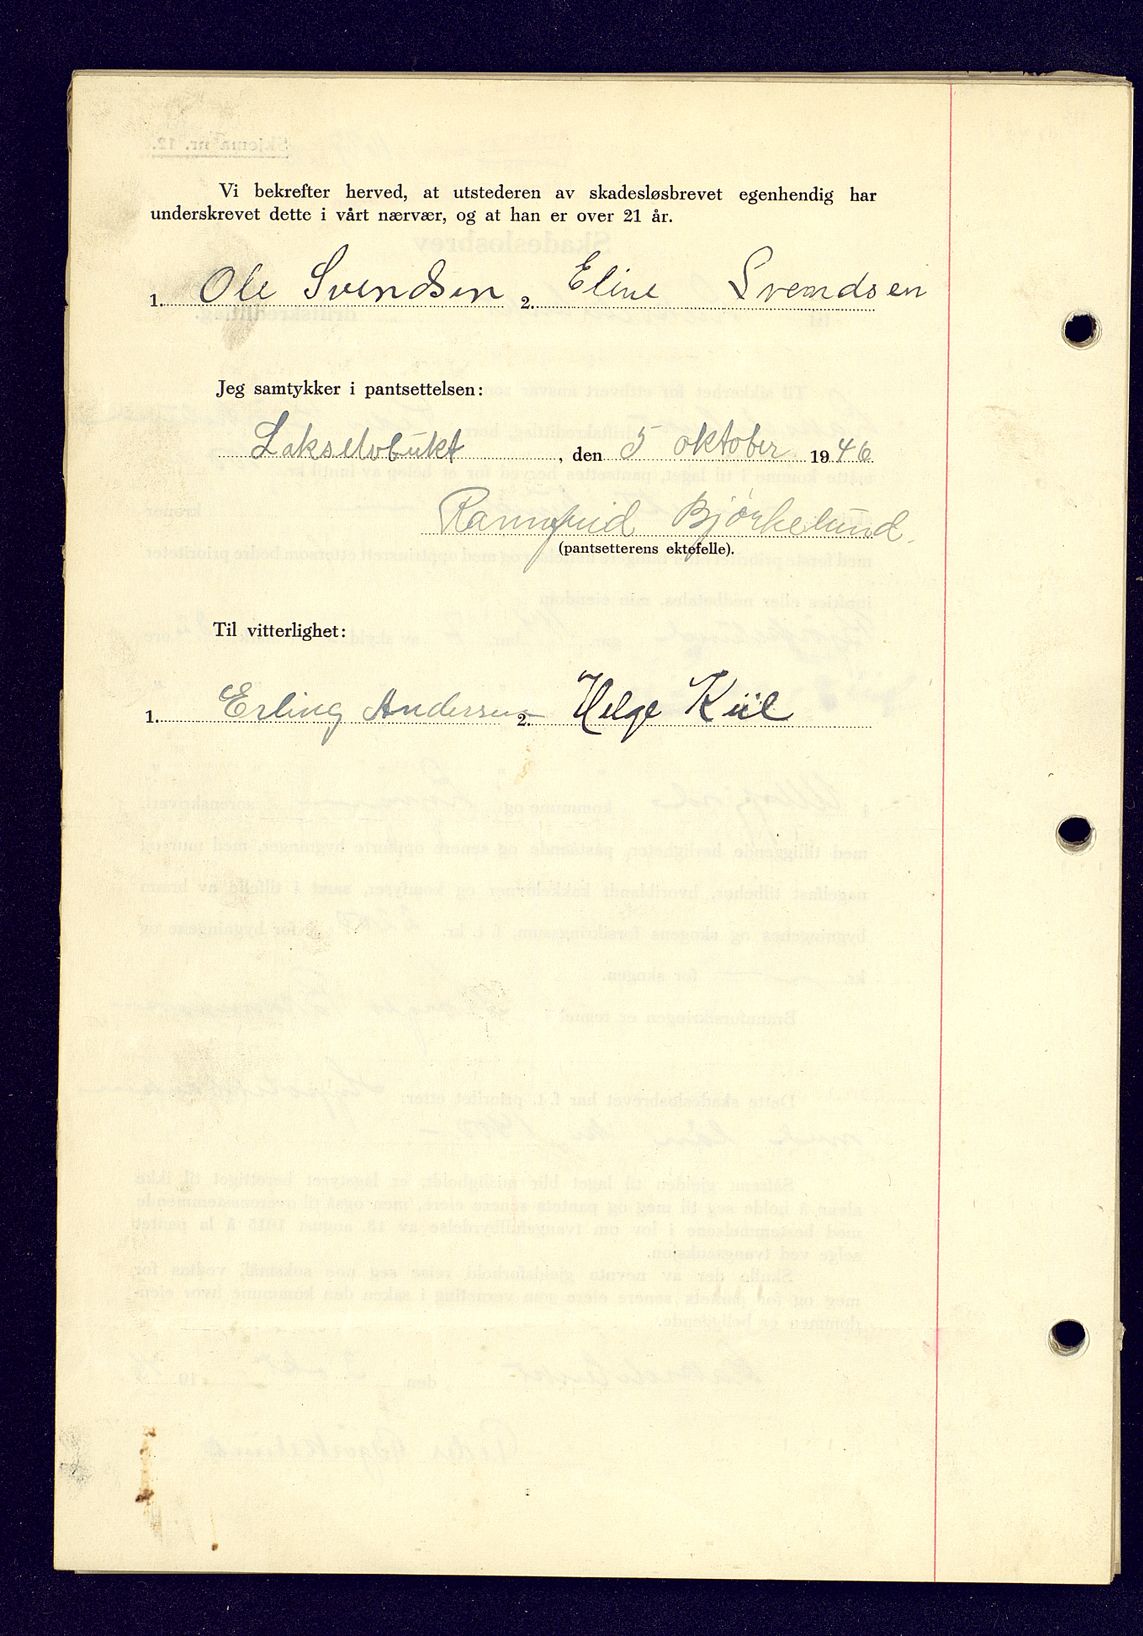 Vi bekrefter herved, at utstederen av skadesløsbrevet egenhendig har
underskrevet dette i vårt nærvær, og at han er over 21 år.
1. Ole Svendsen 2. Eline Svendsen
Jeg samtykker i pantsettelsen:
Lakselvbukt, den 5 oktober 1946
Rannfrid Bjørkelund.
(pantsetterens ektefelle).
Til vitterlighet:
1. Erling Andersen 2. Helge Kiil